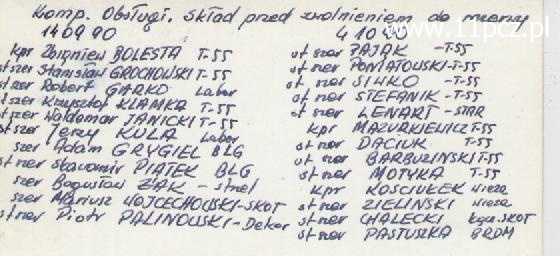 Komp. Obsługi. Skład przed zwolnieniem do rezerwy
www.11pcz.pl
14 09 90
kpr Zbigniew BOLESTA T-55
st szer Stanisław GROCHOWSKI T-55
st szer Robert GARKO Labor
st szer Krzysztof KLAMKA T-55
st szer Waldemar JANICKI T-55
st szer Jerzy KULA Labor
szer Adam GRYGIEL BLG
st szer Sławomir PIĄTEK BLG
szer Bogusław ŻAK - strzel
szer Mariusz WOJCECHOWSKI-SKOT
st szer Piotr PALINOWSKI-Dekor
4 10
st szer ZAJĄK -T-55
st szer PONIATOWSKI-T-55
st szer SIWKO -T-55
st szer STEFANIK -T-55
st szer LENART -STAR
kpr MAZURKIEWICZ T-55
st szer DACIUK T-55
st szer BARBUZINSKI T-55
st szer MOTYKA T-55
kpr KOSCIUŁEK wieża
st szer ZIELINSKI wieża
st szer CHALECKI SKOT
st szer PASTUSZKA BRDM